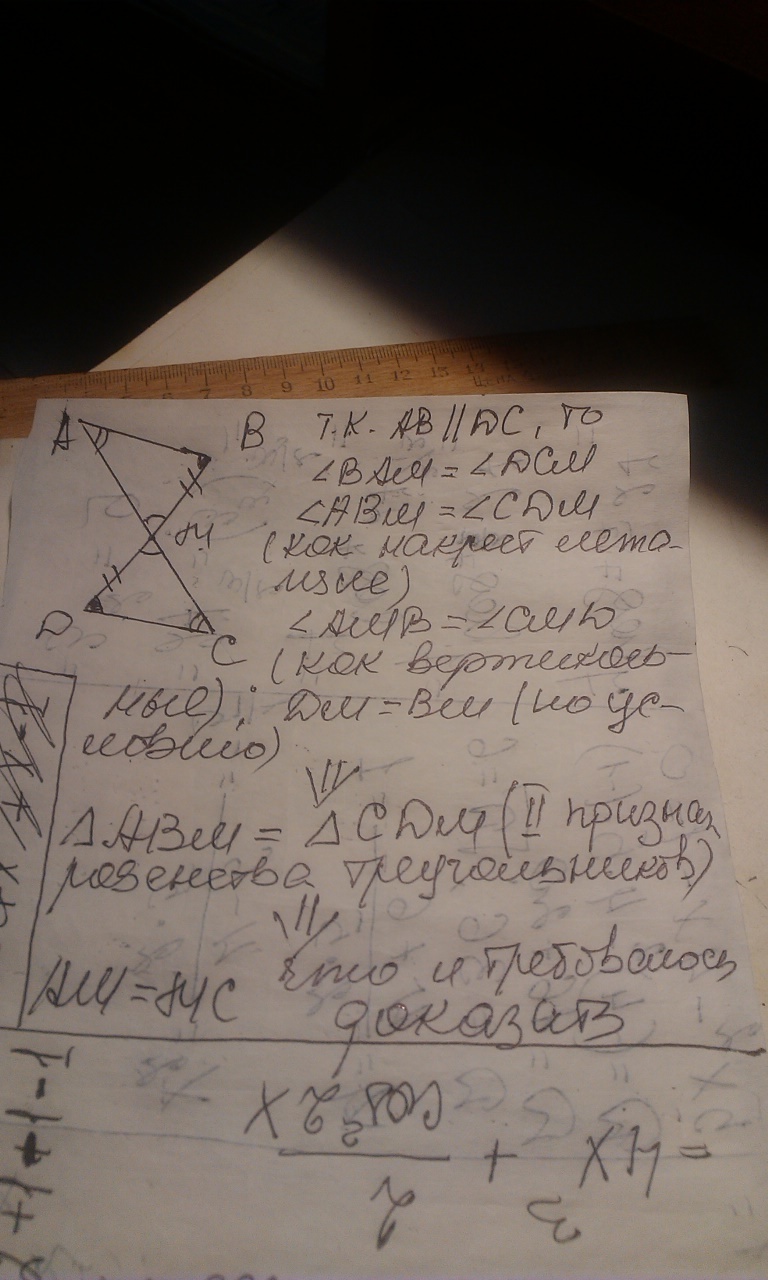 A
B
M
D
C
Т.К. AB || DC, то
∠BAM = ∠DCM
∠ABM = ∠CDM
(как накрест лежа-
щие)
∠AMB = ∠CMD
(как вертикаль-
ные); DM = BM (по ус-
ловию)
⇓
ΔABM = ΔCDM (II признак
равенства треугольников)
⇓
AM = MC что и требовалось
доказать
= 4x³ + 2/cos²2x
7 8 9 10 11 12 13